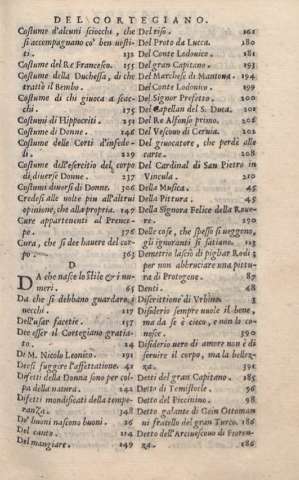 DEL CORTEGIANO.
Costume d'alcuni sciocchi, che
si accompagnano co' ben uesti-
ti. 132
Costume del Re Francesco. 155
Costume della Duchessa, di che
trattò il Bembo.
Costume di chi giuoca a scac-
chi. 175
Costumi di Hippocriti. 251
Costume di Donne. 246
Costume delle Corti d'infedeli-
li. 229
Costume dell'esercito del corpo
di diuerse Donne. 237
Costumi diuersi di Donne. 306
Credesi alle uolte piu all'altrui
opinione, che alla propria. 147
Cure appartenenti al Prenci-
pe. 376
Cura, che si dee hauere del cor-
po. 363
D
DA che nasce lo stile & i nu-
meri. 65
Da che si debbano guardare i
uecchi. 117
Dell'usar facetie. 157
Dee esser il Cortegiano gratio-
to. 24
Di M. Nicolo Leonico. 191
Deesi fuggire l'affettatione. 42
Difetti della Donna sono per col-
pa della natura. 242
Difetti mondificati della tempe-
ranza. 348
Da' buoni nascono buoni. 26
Del canto. 114
Del mangiare. 149
Del riso. 161
Del Proto da Lucca. 180
Del Conte Lodouico. 181
Del gran Capitano. 193
Del Marchese di Mantoua. 194
Del Conte Lodouico. 199
Del Signor Prefetto. 200
Del Capellan del S. Duca. 201
Del Re Alfonso primo. 206
Del Vescouo di Ceruia. 202
Del giuocatore, che perde alle
carte. 208
Del Cardinal di San Pietro in
Vincula. 210
Della Musica. 45
Della Pittura. 45
Della Signora Felice della Roue-
re. 290
Delle cose, che spesso si ueggono,
gli ignoranti si satiano. 123
Demetrio lasciò di pigliar Rodi
per non abbruciare una pittu-
ra di Protogene. 87
Denti. 48
Discrittione di Vrbino. 3
Disiderio sempre uuole il bene,
ma da se è cieco, e non lo cono-
sce. 390
Disiderio uero di amore non è di
seruire il corpo, ma la bellez-
za. 391
Detti del gran Capitano. 185
Detto di Temistocle. 96
Detto del Piccinino. 98
Detto galante di Gein Ottoman
ni fratello del gran Turco. 186
Detto dell'Arciuescouo di Fioren-
za. 186